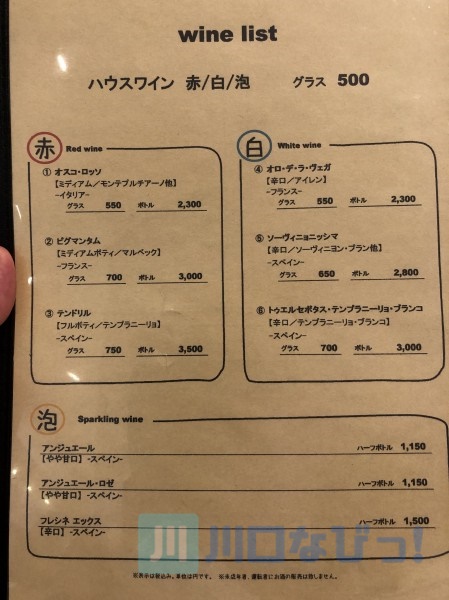 wine list
ハウスワイン 赤/白/泡 グラス 500
赤 Red wine
① オスコ・ロッソ
【ミディアム/モンテプルチアーノ他】
-イタリア-
グラス 550 ボトル 2,300
② ピグマンタム
【ミディアムボディ/マルベック】
-フランス-
グラス 700 ボトル 3,000
③ テンドリル
【フルボディ/テンプラニーリョ】
-スペイン-
グラス 750 ボトル 3,500
白 White wine
④ オロ・デ・ラ・ヴェガ
【辛口/アイレン】
-フランス-
グラス 550 ボトル 2,300
⑤ ソーヴィニョニッシマ
【辛口/ソーヴィニヨン・ブラン他】
-スペイン-
グラス 650 ボトル 2,800
⑥ トゥエルセボタス・テンプラニーリョ・ブランコ
【辛口/テンプラニーリョ・ブランコ】
-スペイン-
グラス 700 ボトル 3,000
泡 Sparkling wine
アンジュエール ハーフボトル 1,150
【やや甘口】-スペイン-
アンジュエール・ロゼ ハーフボトル 1,150
【やや甘口】-スペイン-
フレシネ エックス ハーフボトル 1,500
【辛口】-スペイン-
川口なびっ!
※表示は税込み、単位は円です。 ※未成年者、運転者にお酒の販売は致しません。